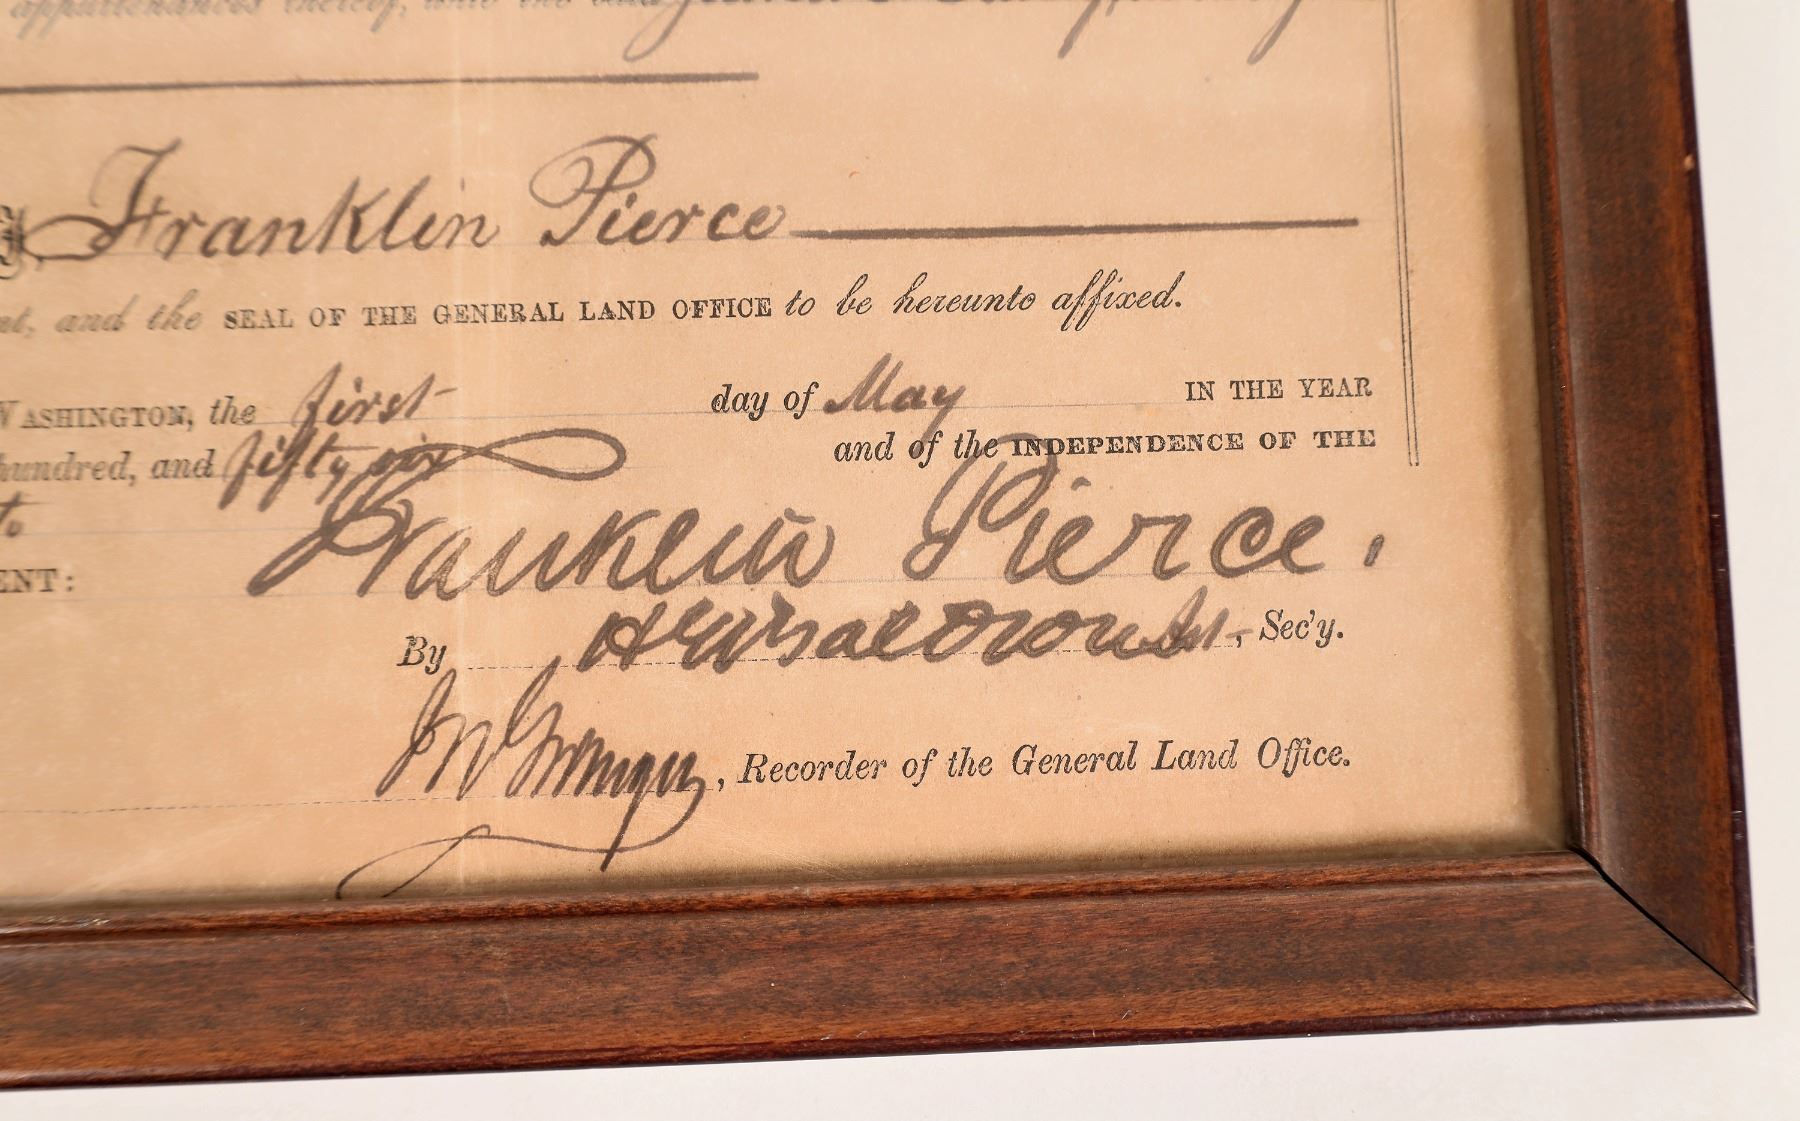 appurtenances thereof, unto the said
Franklin Pierce
and the SEAL OF THE GENERAL LAND OFFICE to be hereunto affixed.
WASHINGTON, the first day of May IN THE YEAR
hundred, and fifty six and of the INDEPENDENCE OF THE
Franklin Pierce.
By , Sec'y.
, Recorder of the General Land Office.